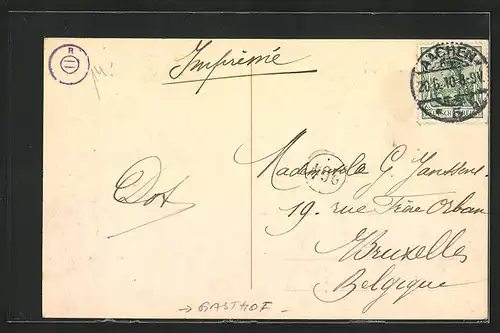 R
11
Imprimé
AACHEN
20.6.10.8-9V
194
Mademoiselle G. Janssens
19. rue Frère Orban
Bruxelles
Belgique
Dot
→ GASTHOF